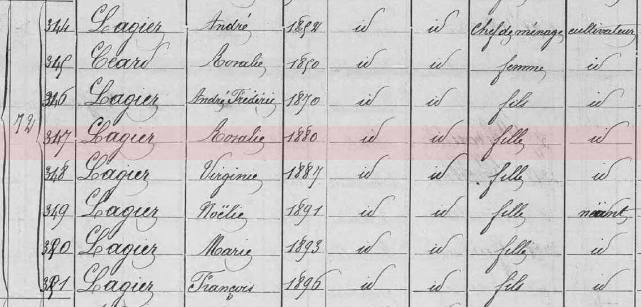 344 Lagier André 1852 id id Chef de ménage cultivateur
345 Eard Rosalie 1850 id id femme id
346 Lagier André Frédéric 1870 id id fils id
72 347 Lagier Rosalie 1880 id id fille id
348 Lagier Virginie 1887 id id fille id
349 Lagier Noëlie 1891 id id fille néant
350 Lagier Marie 1893 id id fille id
351 Lagier François 1896 id id fils id